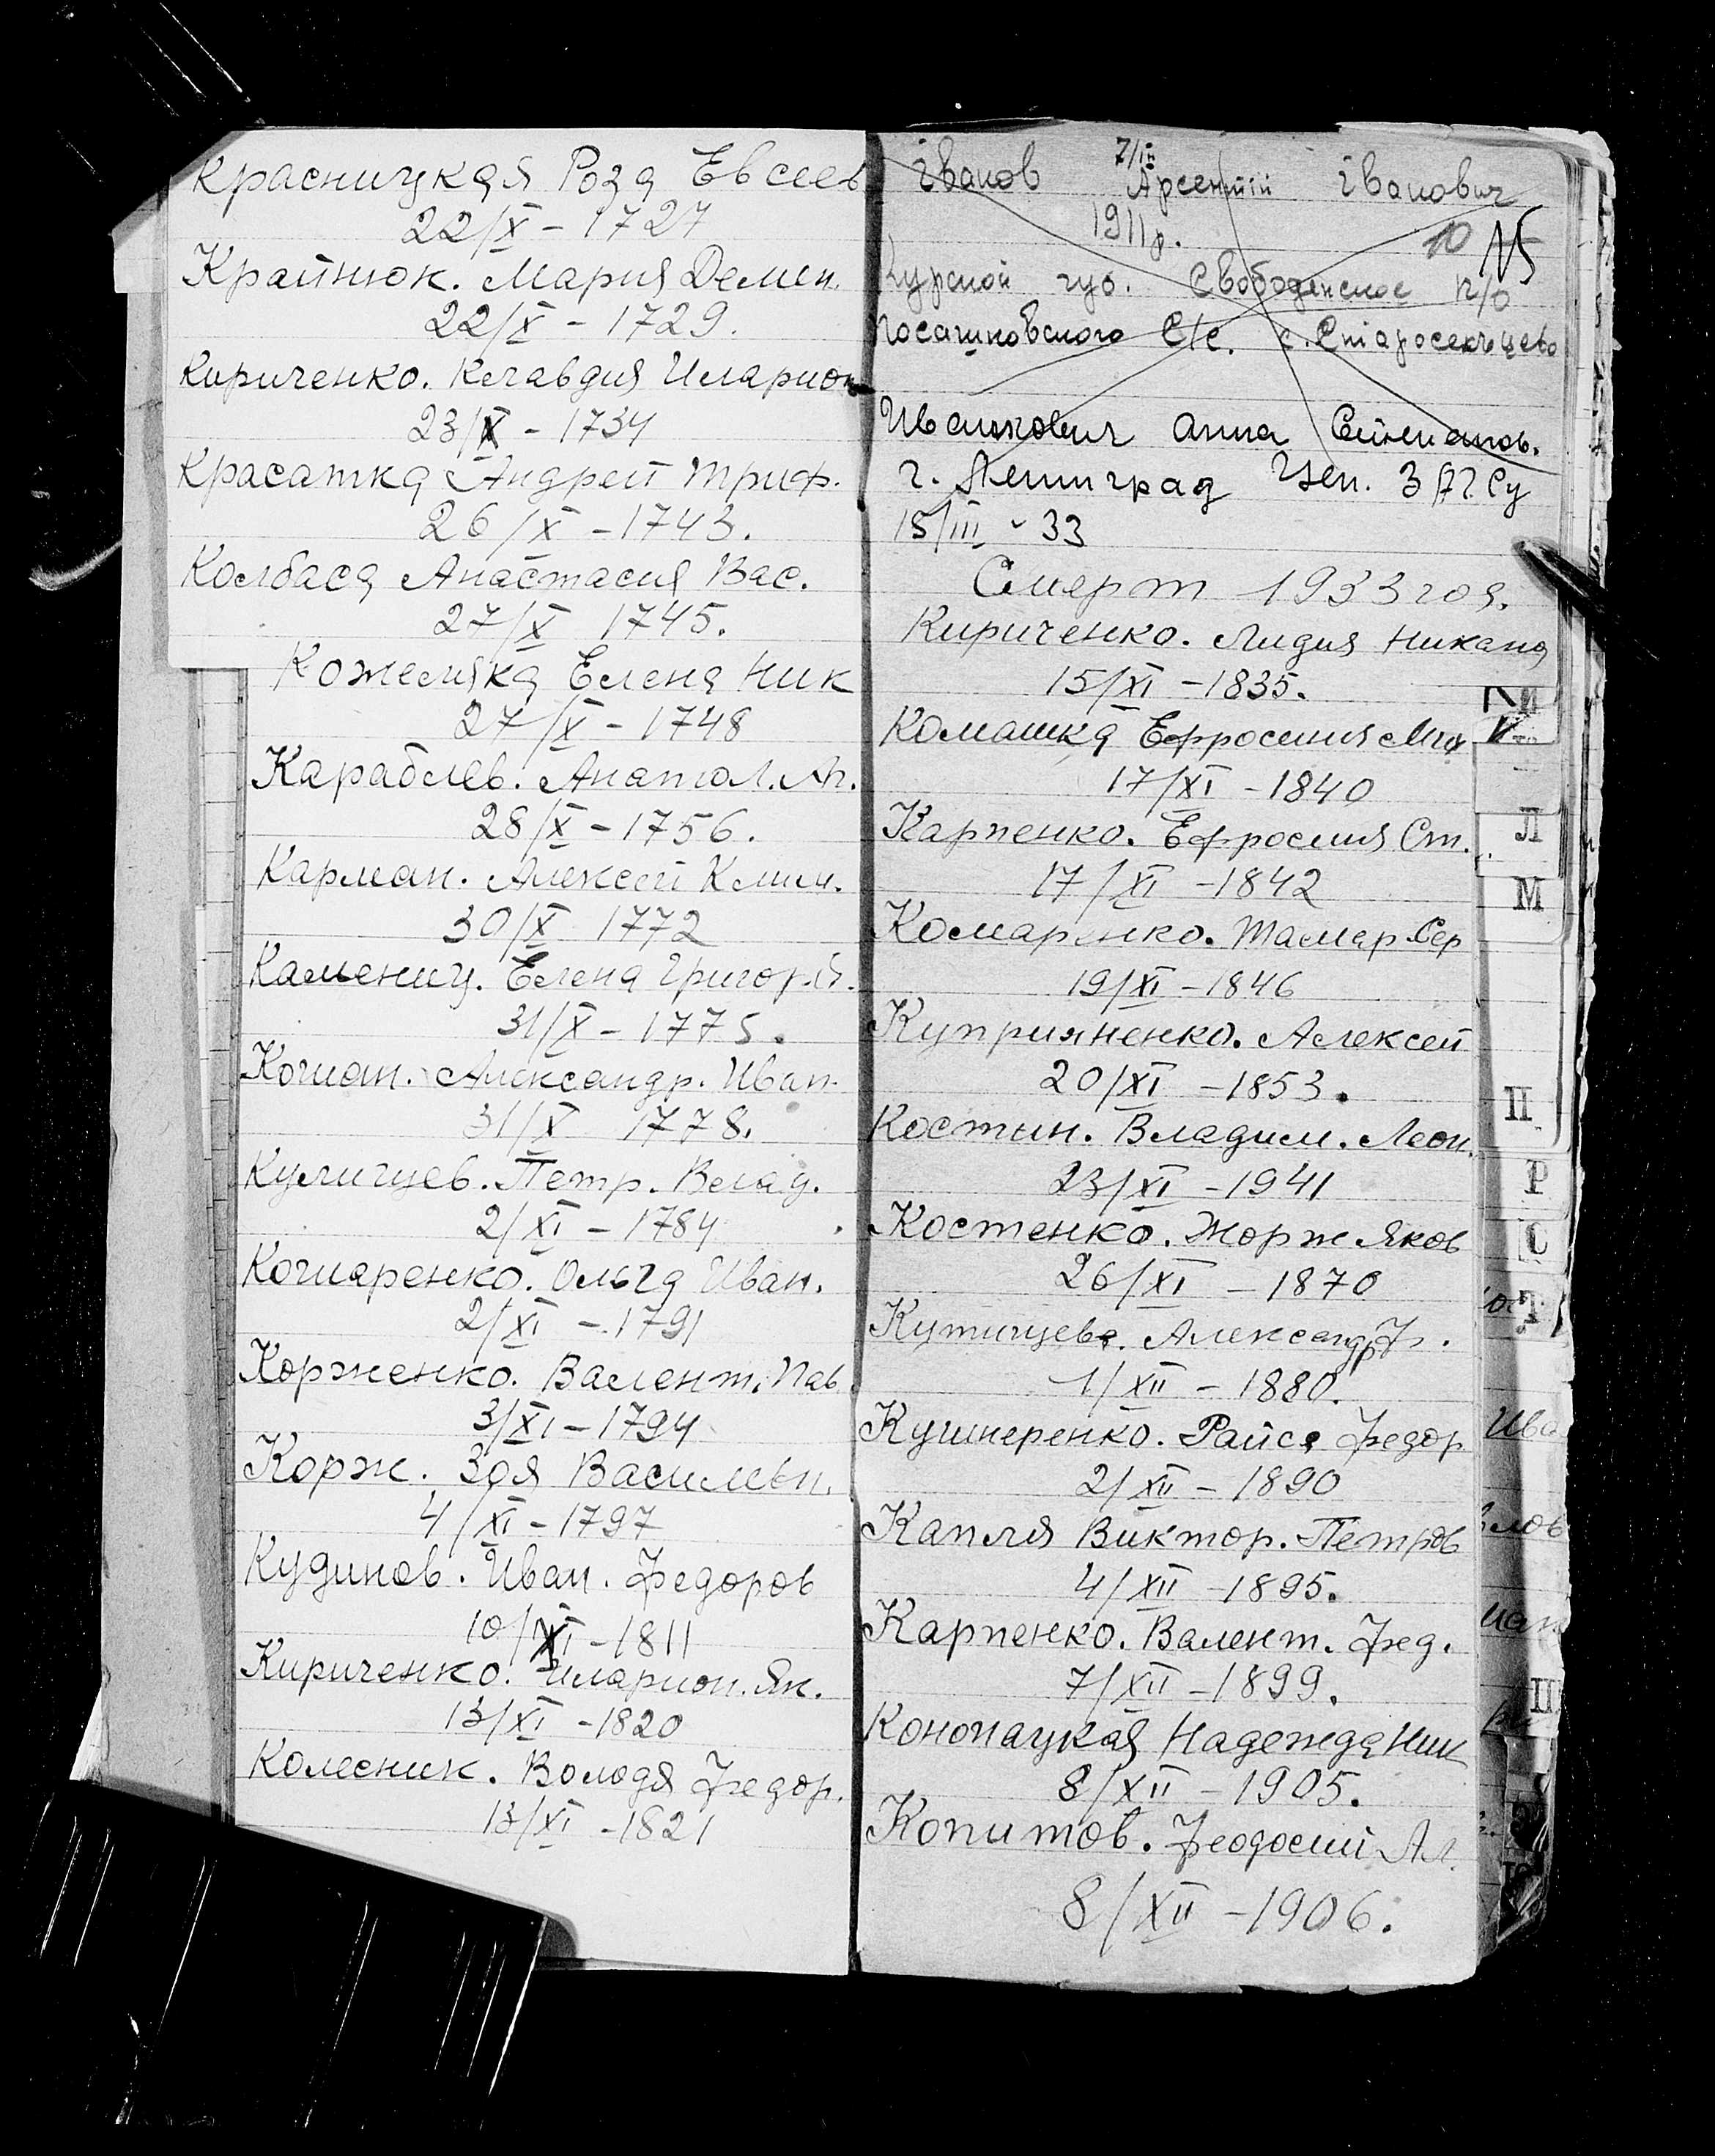 Красницкая Роза Евсеев
22/X - 1727
Крайнюк. Мария Демен.
22/X - 1729.
Кириченко. Клавдия Иларион
23/X - 1734
Красатка Андрей Триф.
26/X - 1743.
Колбаса Анастасия Вас.
27/X 1745.
Кожемяка Елена Ник
27/X - 1748
Караблев. Анатол. Ап.
28/X - 1756.
Карман. Алексей Клим.
30/X 1772
Каменец. Елена Григор.
31/X - 1775.
Коман. Александр. Иван.
31/X 1778.
Куличцев. Петр. Влад.
2/XI - 1784
Комаренко. Ольга Иван.
2/XI - 1791
Корженко. Валент. Пав
3/XI - 1794
Корж. Зоя Васильен.
4/XI - 1797
Кудинов. Иван. Федоров
10/XI - 1811
Кириченко. Иларион. Як.
13/XI - 1820
Колесник. Володя Федор.
13/XI - 1821
7/III
Іванов Арсентій Іванович
1911 р.
10
Курской губ. Свободенское п/о
С/с. с.
Ивашкович Анна
г. Ленинград Цен. ЗАГСу
15/III - 33
Смерт 1933 год.
Кириченко. Лидия Никана
15/XI - 1835.
Комашка Ефросиния Мих
17/XI - 1840
Карпенко. Ефросиния Ст.
17/XI - 1842
Комаренко. Тамар Сер
19/XI - 1846
Куприяненко. Алексей
20/XI - 1853.
Костин. Владим. Леон.
23/XI - 1941
Костенко. Жорж Яков
26/XI - 1870
Александр
1/XII - 1880.
Кушнеренко. Раиса Федор
2/XII - 1890
Капля Виктор. Петров
4/XII - 1895.
Карпенко. Валент. Фед.
7/XII - 1899.
Конопацкая Надежда Ник
8/XII - 1905.
Копитов. Феодосий Ал.
8/XII - 1906.
Л
М
П
Р
С
Т